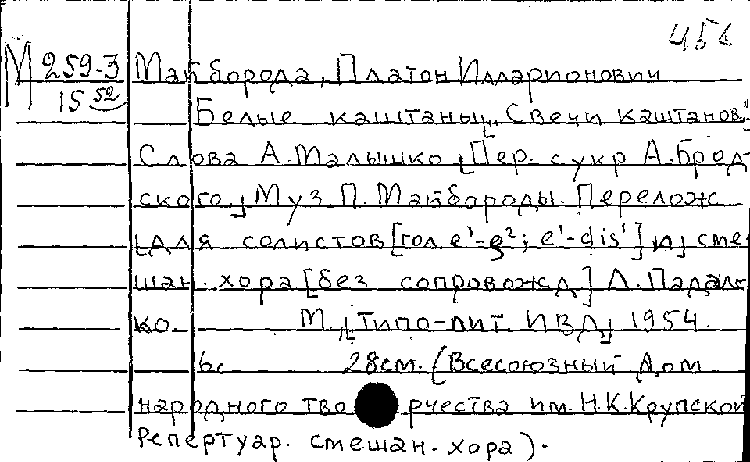 М 259-3 Майборода, Платон Илларионович
15 52
Белые каштаны „Свечи каштанов"
Слова А. Малышко [Пер. с укр А. Брод-
ского] Муз П. Майбороды. Перелож
[для солистов [гол e¹-g²; e¹-dis¹] и] сме-
шан. хора [без сопровожд] Л. Падал-
ко. М., [Типо-лит. ИВД] 1954.
6с 28см. (Всесоюзный дом
народного творчества им. Н.К.Крупской
Репертуар. смешан. хора).